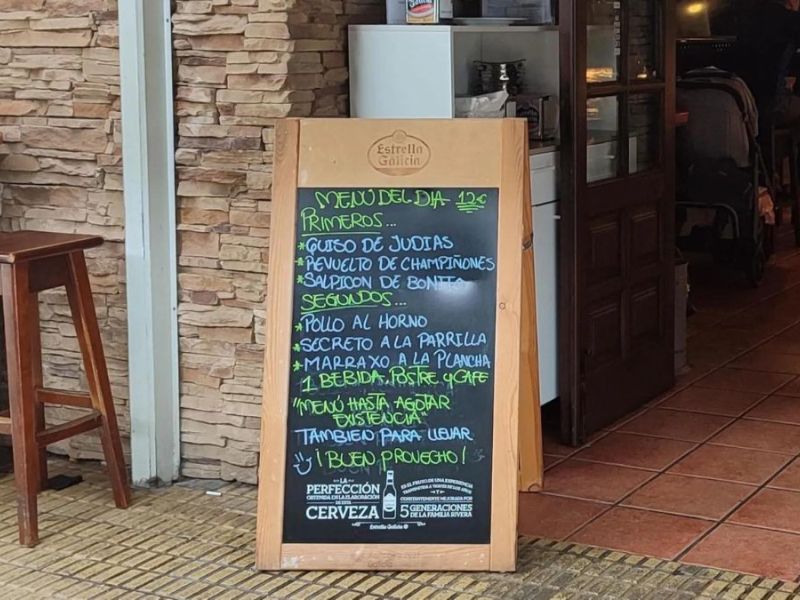 Estrella
Galicia
MENÚ DEL DIA 12€
PRIMEROS...
*GUISO DE JUDIAS
*REVUELTO DE CHAMPIÑONES
*SALPICON DE BONITO
SEGUNDOS...
*POLLO AL HORNO
*SECRETO A LA PARRILLA
*MARRAXO A LA PLANCHA
1 BEBIDA, POSTRE y CAFE
"MENÚ HASTA AGOTAR
EXISTENCIA"
TAMBIEN PARA LLEVAR
¡BUEN PROVECHO!
LA
PERFECCIÓN
OBTENIDA EN LA ELABORACIÓN
DE ESTA
CERVEZA
ES EL FRUTO DE UNA EXPERIENCIA
TRANSMITIDA A TRAVÉS DE LOS AÑOS
Y
CONSTANTEMENTE MEJORADA POR
5 GENERACIONES
DE LA FAMILIA RIVERA
Estrella Galicia